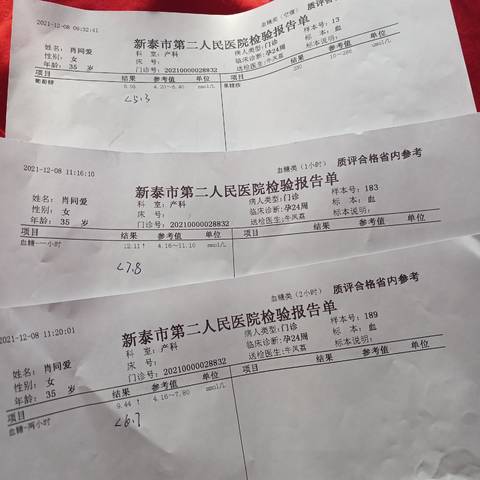 2021-12-08 09:32:41
血糖类(空腹) 质评合格省内参考
新泰市第二人民医院检验报告单
姓名: 肖同爱 科 室: 产科 病人类型: 门诊 样本号: 13
性别: 女 床 号: 临床诊断: 孕24周 标 本: 血
年龄: 35 岁 门诊号: 20210000028832 送检医生: 牛凤荔 标本说明:
项目 结果 参考值 单位 项目 结果 参考值 单位
葡萄糖 4.20~6.40 mmol/L
<5.3
2021-12-08 11:16:10
血糖类(1小时) 质评合格省内参考
新泰市第二人民医院检验报告单
姓名: 肖同爱 科 室: 产科 病人类型: 门诊 样本号: 183
性别: 女 床 号: 临床诊断: 孕24周 标 本: 血
年龄: 35 岁 门诊号: 20210000028832 送检医生: 牛凤荔 标本说明:
项目 结果 参考值 单位 项目 结果 参考值 单位
血糖-一小时 12.11↑ 4.16~11.10 mmol/L
<7.8
2021-12-08 11:20:01
血糖类(2小时) 质评合格省内参考
新泰市第二人民医院检验报告单
姓名: 肖同爱 科 室: 产科 病人类型: 门诊 样本号: 189
性别: 女 床 号: 临床诊断: 孕24周 标 本: 血
年龄: 35 岁 门诊号: 20210000028832 送检医生: 牛凤荔 标本说明:
项目 结果 参考值 单位 项目 结果 参考值 单位
血糖-两小时 9.44 ↑ 4.16~7.80 mmol/L
<6.7